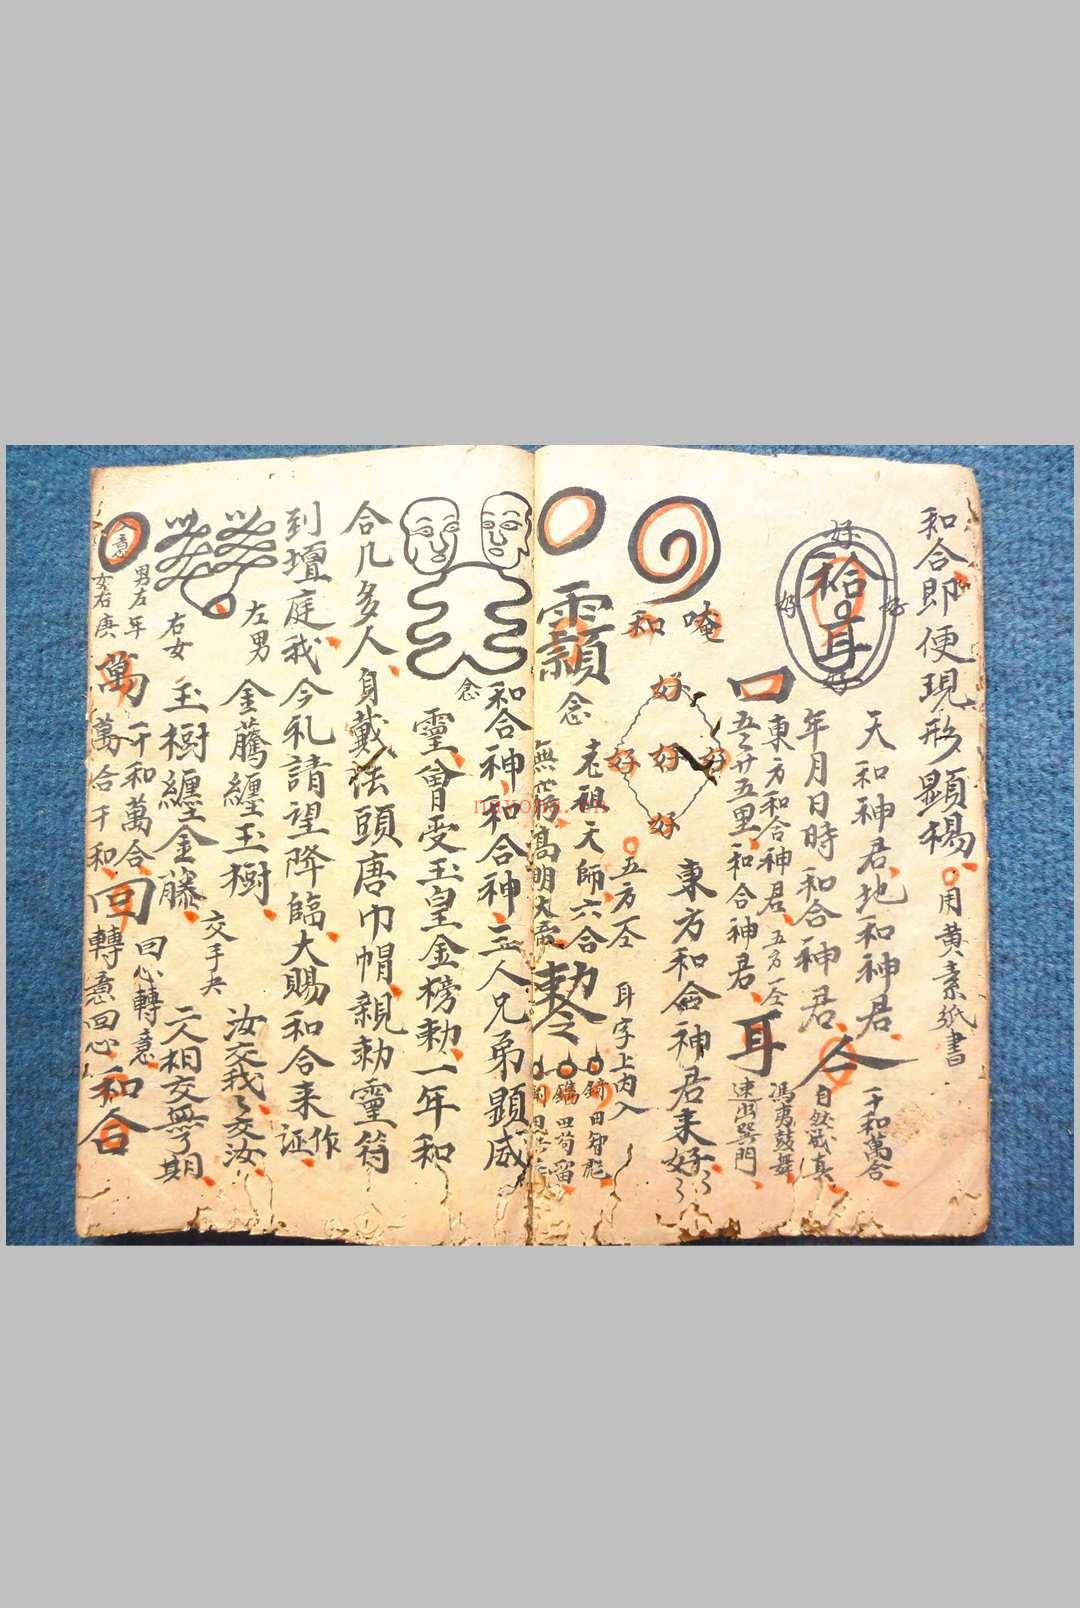 和合即便現形顯揚用黄素紙書
好
好
好
好
天和神君地和神君
千和萬合
年月日時和合神君
合
自然成真
東方和合神君五方仝
馮夷鼓舞
口
五五廿五里和合神君
耳
速出巽門
唵
和
好
好
好
好
好
東方和合神君来好
五方仝
耳字上内入
念
老祖天師六合
無 高明大帝
敕令
和合神和合神二人兄弟顕威
念
靈曾受玉皇金榜勅一年和
合几多人身戴法頭唐巾帽親勅靈符
到壇庭我今礼請望降臨大賜和合来作証
左男
金藤纏玉樹
交手夾
汝交我我交汝
右女
玉樹纏金藤
回心轉意
二人相交無了期
意
男左年
女右庚
萬
千和萬合
萬合千和
回
轉意回心
和合